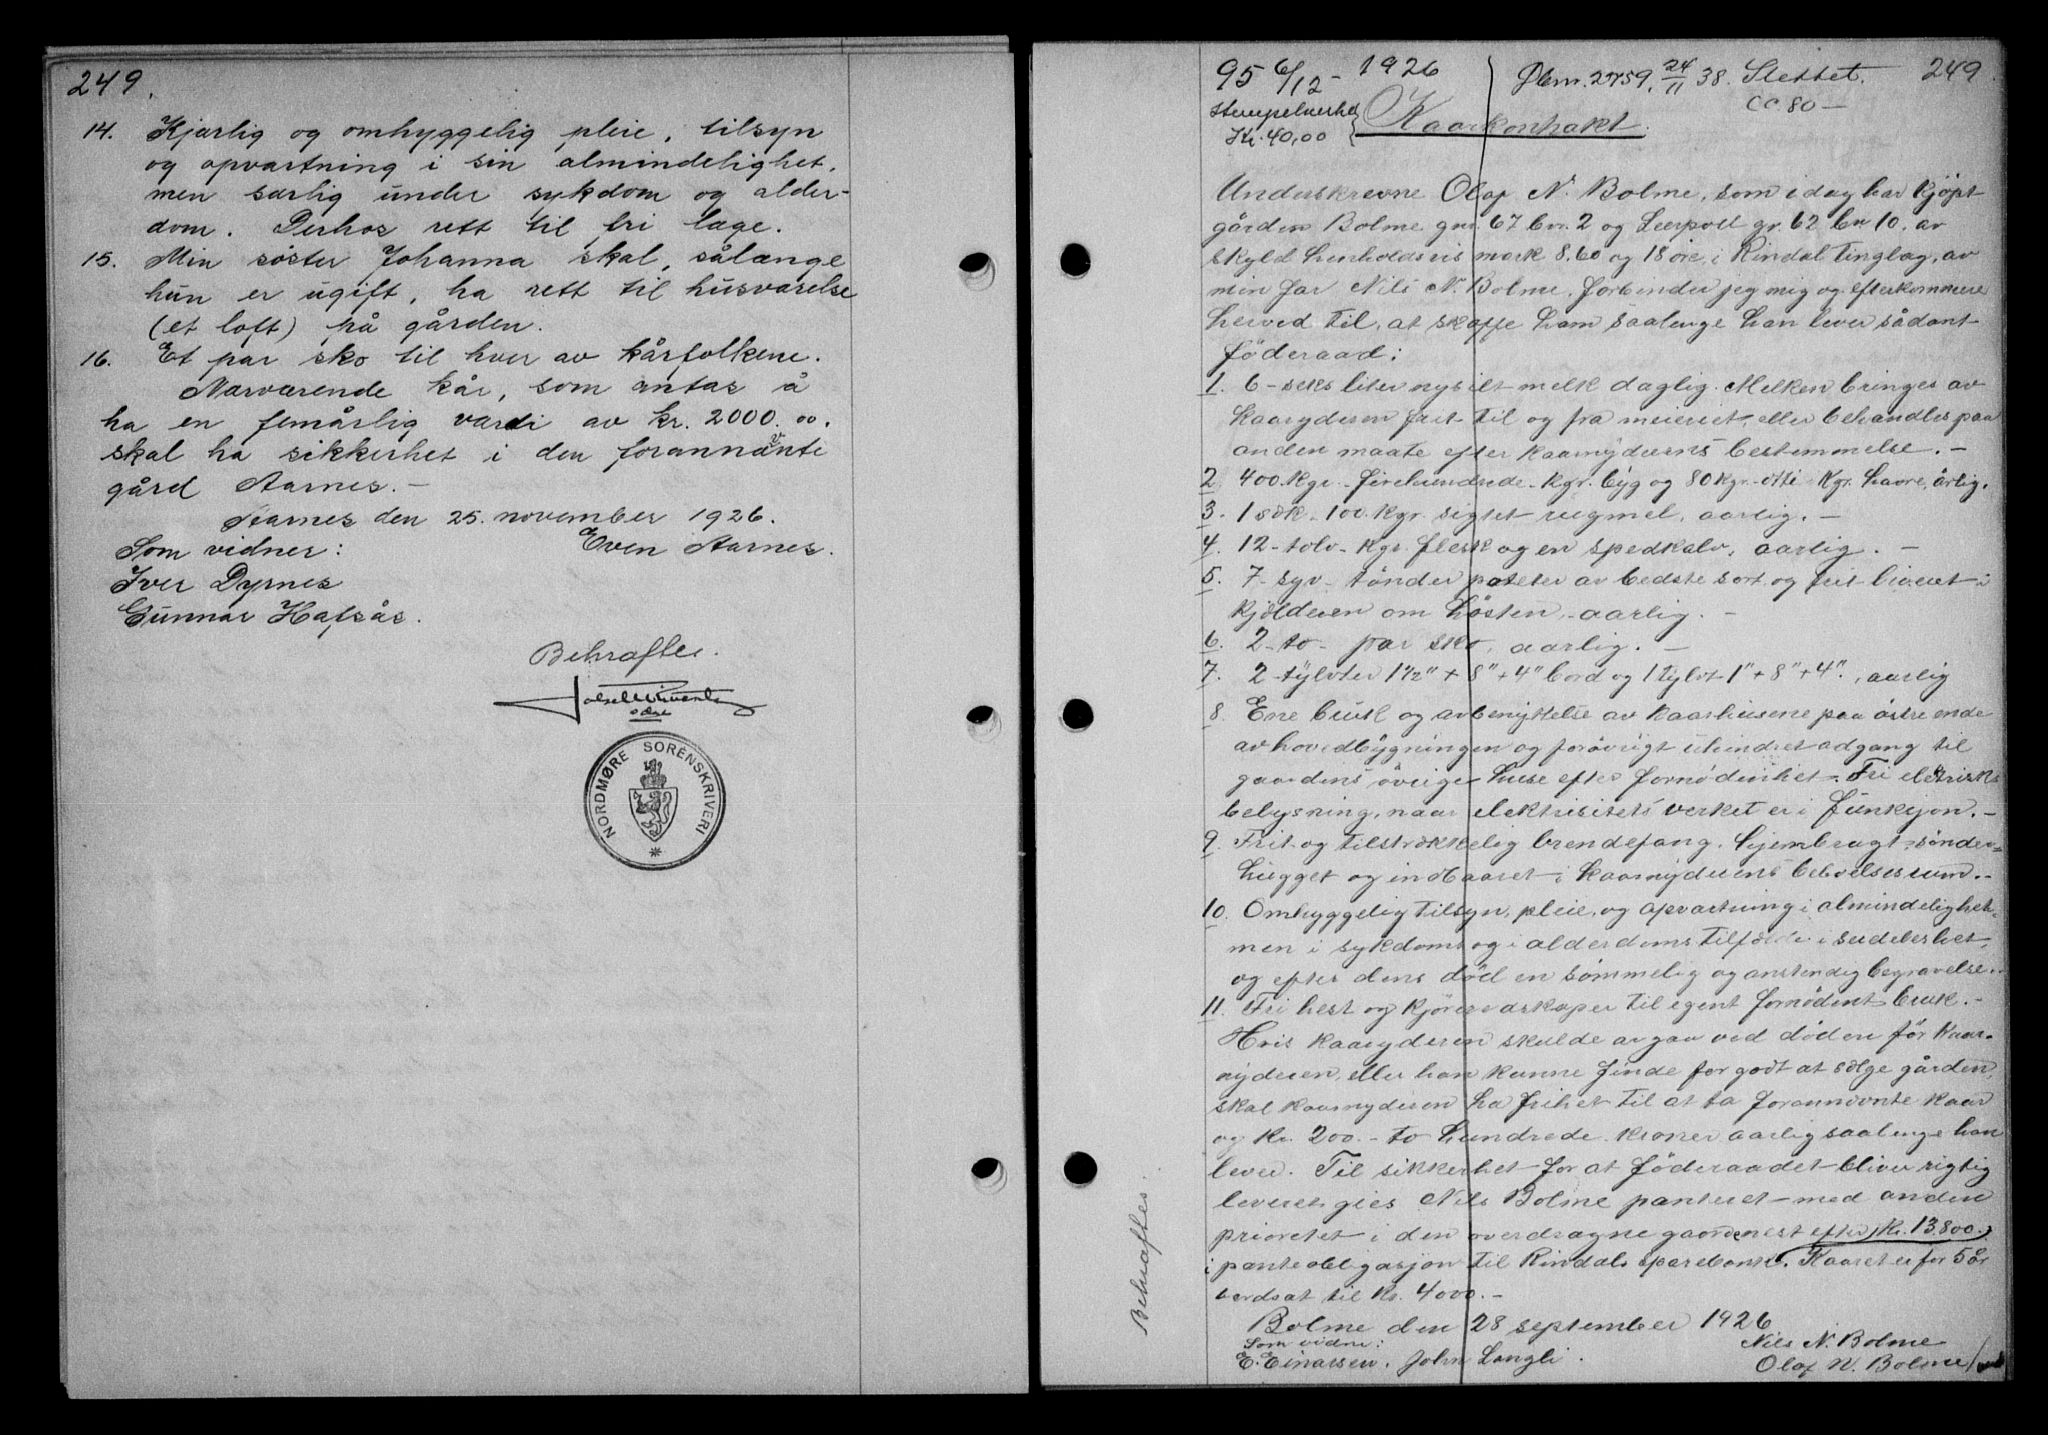 249.
14. Kjærlig og omhyggelig pleie, tilsyn
og opvartning i sin almindelighet,
men særlig under sykdom og alder-
dom. Derhos rett til fri læge.
15. Min søster Johanna skal, sålænge
hun er ugift, ha rett til husværelse
(et loft) på gården.
16. Et par sko til hver av kårfolkene.
Nærværende kår, som antas å
ha en femårlig værdi av kr. 2000.00,
skal ha sikkerhet i den forannævnte
gård Aarnes.-
Aarnes den 25. november 1926.
Som vidner: Even Aarnes.
Iver Dyrnes
Gunnar Hafsås.
Bekræftes.
NORDMØRE SORENSKRIVERI
95 6/12 - 1926 Dbnr. 2759, 24/11 38. Slettet. 249.
CC 80-
Stempelverdi
Kr. 40,00 Kaarkontrakt.
Underskrevne Olaf N. Bolme, som i dag har kjøpt
gården Bolme gnr. 67 bnr. 2 og Leerpoll gr. 62 bn 10. av
skyld henholdsvis mark 8,60 og 18 øre, i Rindal tinglag, av
min far Nils N. Bolme, forbinder jeg mig og efterkommere
herved til, at skaffe ham saalenge han lever sådant
föderaad:
1. 6-seks liter nysilt melk daglig. Melken bringes av
kaaryderen frit til og fra meieriet, eller behandles paa
anden maate efter kaarnyderens bestemmelse.-
2. 400 kgr.- firehundrede- kgr. byg og 80 kgr.- otti- kgr. havre, årlig.
3. 1 sæk- 100. kgr. sigtet rugmel, aarlig.-
4. 12- tolv- kgr. flesk og en spedkalv, aarlig.-
5. 7- syv- tönder poteter av bedste sort og frit levert i
kjælderen om hösten, aarlig.-
6. 2- to- par sko, aarlig.-
7. 2 tylvter 1 1/2" + 8" + 4" bord og 1 tylvt 1" + 8" + 4"., aarlig
8. Ene bruk og avbenyttelse av kaarhusene paa östre ende
av hovedbygningen og forövrigt uhindret adgang til
gaardens övrige huse efter fornödenhet. Fri elektrisk
belysning, naar elektrisitetsverket er i funksjon.-
9. Frit og tilstrækkelig brendefang, hjembragt, sönder-
hugget og indbaaret i kaarnyderens beboelsesrum.-
10. Omhyggelig tilsyn, pleie, og opvartning i almindelighet,
men i sykdoms og i alderdoms tilfælde i serdeleshet,
og efter dens död en sömmelig og anstendig begravelse.
11. Fri hest og kjöreredskaper til egent fornödent bruk.-
Hvis kaaryderen skulde avgaa ved döden för kaar-
nyderen, eller han kunne finde for godt at sælge gården,
skal kaarnyderen ha frihet til at ta forannevnte kaar
og kr. 200.- to hundrede kroner aarlig saalenge han
lever. Til sikkerhet for at föderaadet bliver rigtig
leveret gies Nils Bolme panteret med anden
prioretet i den overdragne gaard nest efter kr. 13.800.
i panteobligasjon til Rindals Sparebank. Kaaret er for 5 år
verdsat til kr. 4000.-
Bolme den 28 september 1926
Som vidne: Nils N. Bolme
E. Einarsen. John Langli. Olaf N. Bolme
Bekræftes.